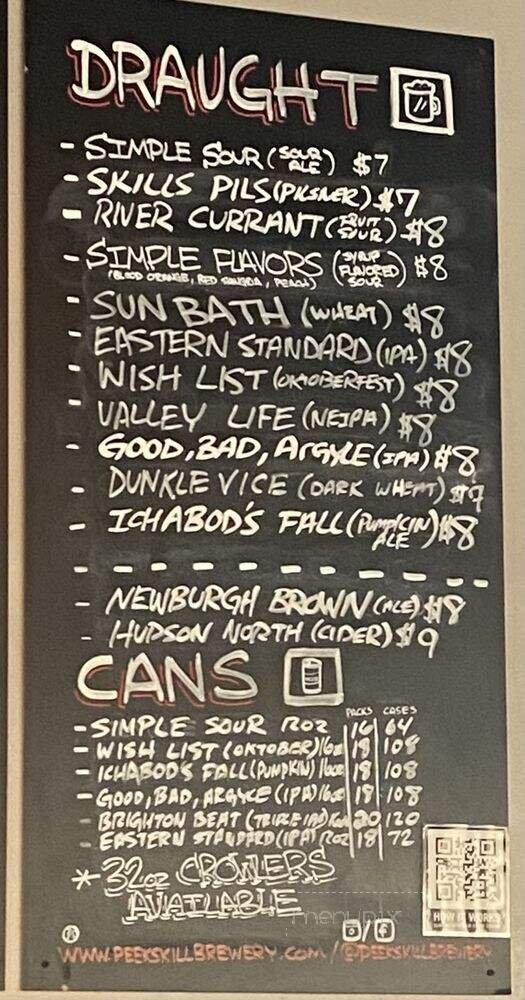 DRAUGHT
- SIMPLE SOUR (SOUR ALE) $7
- SKILLS PILS (PILSNER) $7
- RIVER CURRANT (FRUIT SOUR) $8
- SIMPLE FLAVORS (SYRUP FLAVORED SOUR) $8
(BLOOD ORANGE, RED SANGRIA, PEACH)
- SUN BATH (WHEAT) $8
- EASTERN STANDARD (IPA) $8
- WISH LIST (OKTOBERFEST) $8
- VALLEY LIFE (NEIPA) $8
- GOOD, BAD, ARGYLE (IPA) $8
- DUNKLE VICE (DARK WHEAT)
- ICHABOD'S FALL (PUMPKIN ALE) $8
- NEWBURGH BROWN (ALE) $8
- HUDSON NORTH (CIDER) $9
CANS
PACKS CASES
- SIMPLE SOUR 12OZ 16 64
- WISH LIST (OKTOBER) 16oz 18 108
- ICHABOD'S FALL (PUMPKIN) 16oz 18 108
- GOOD, BAD, ARGYLE (IPA) 16oz 18 108
- BRIGHTON BEAT (TRIPLE IPA) 20 120
- EASTERN STANDARD (IPA) 12OZ 18 72
* 32oz CROWLERS AVAILABLE
HOW IT WORKS
menupix
WWW.PEEKSKILLBREWERY.COM / @PEEKSKILLBREWERY